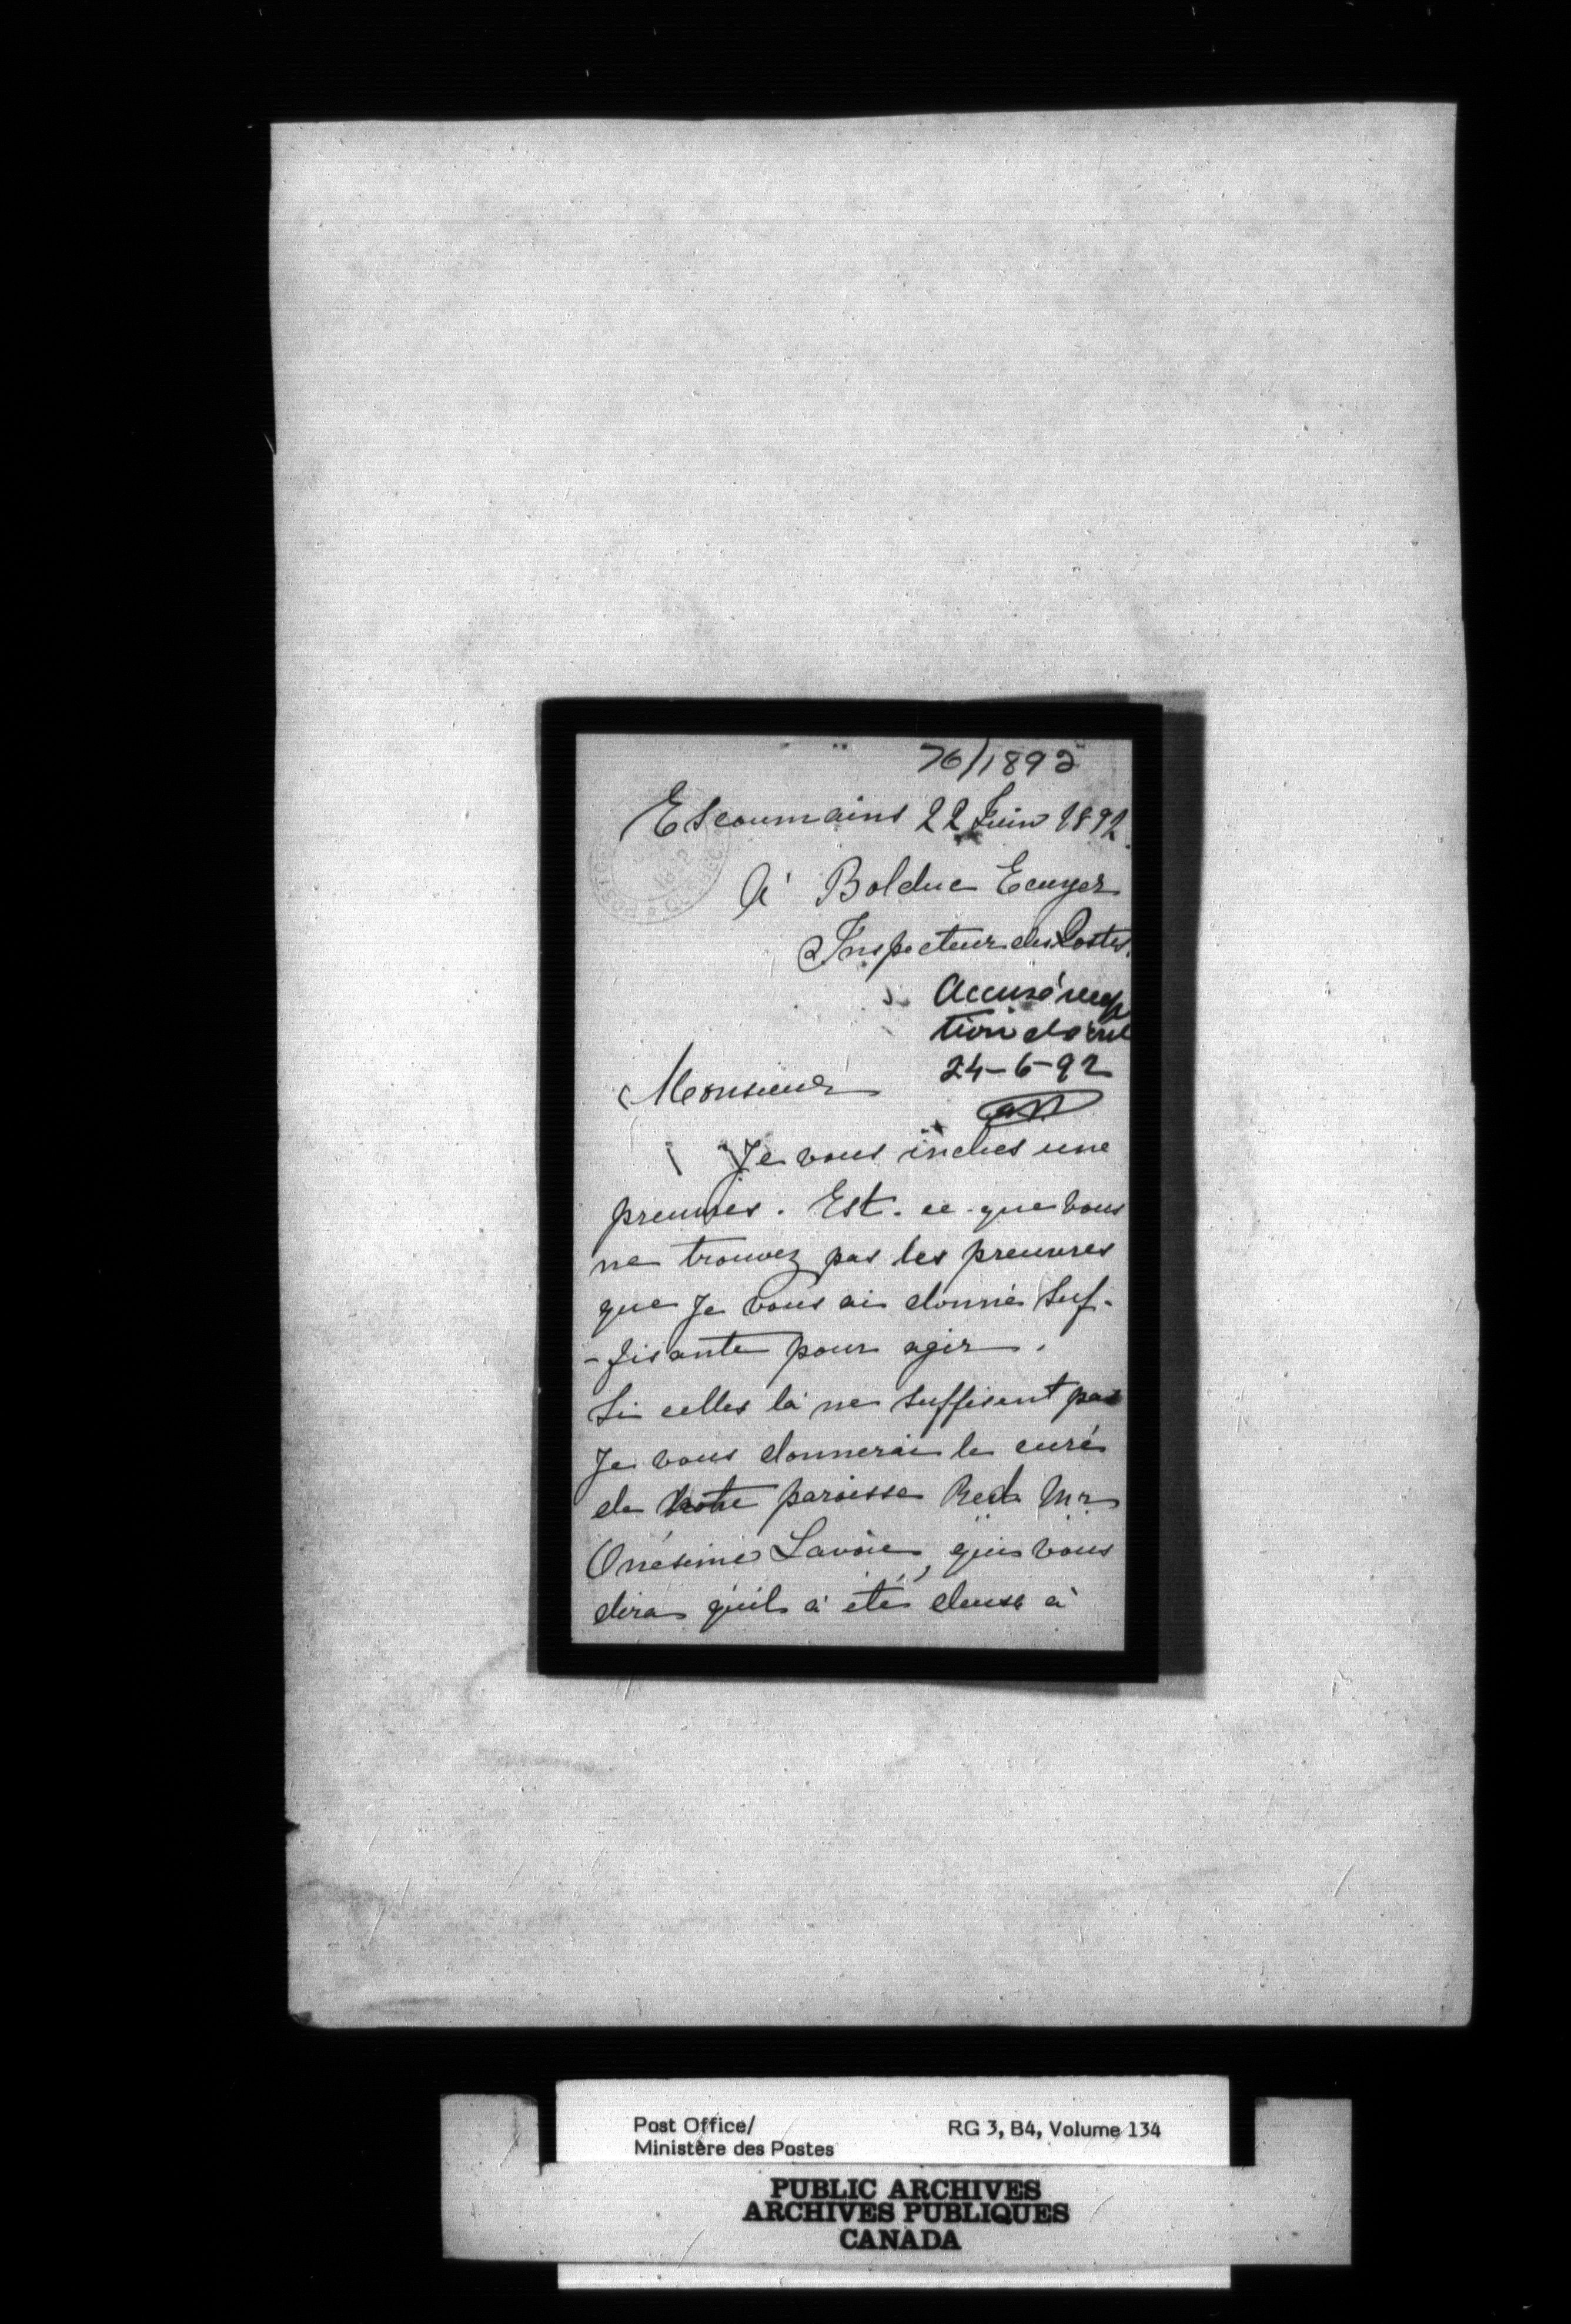 76/1892
Escoumains 22 Juin 1892.
A Bolduc Ecuyer
Inspecteur des Postes.
Accusé récep
tion
24-6-92
Monsieur
Je vous inclus une
preuves. Est-ce-que vous
ne trouvez pas les preuves
que Je vous ai donné suf-
-fisante pour agir.
Si celles là ne suffisent pas
Je vous donnerai le curé
de notre paroisse Red. Mr
Onésime Lavoie, qui vous
dira qu'il à été deuse à
Post Office/
Ministère des Postes
RG 3, B4, Volume 134
PUBLIC ARCHIVES
ARCHIVES PUBLIQUES
CANADA